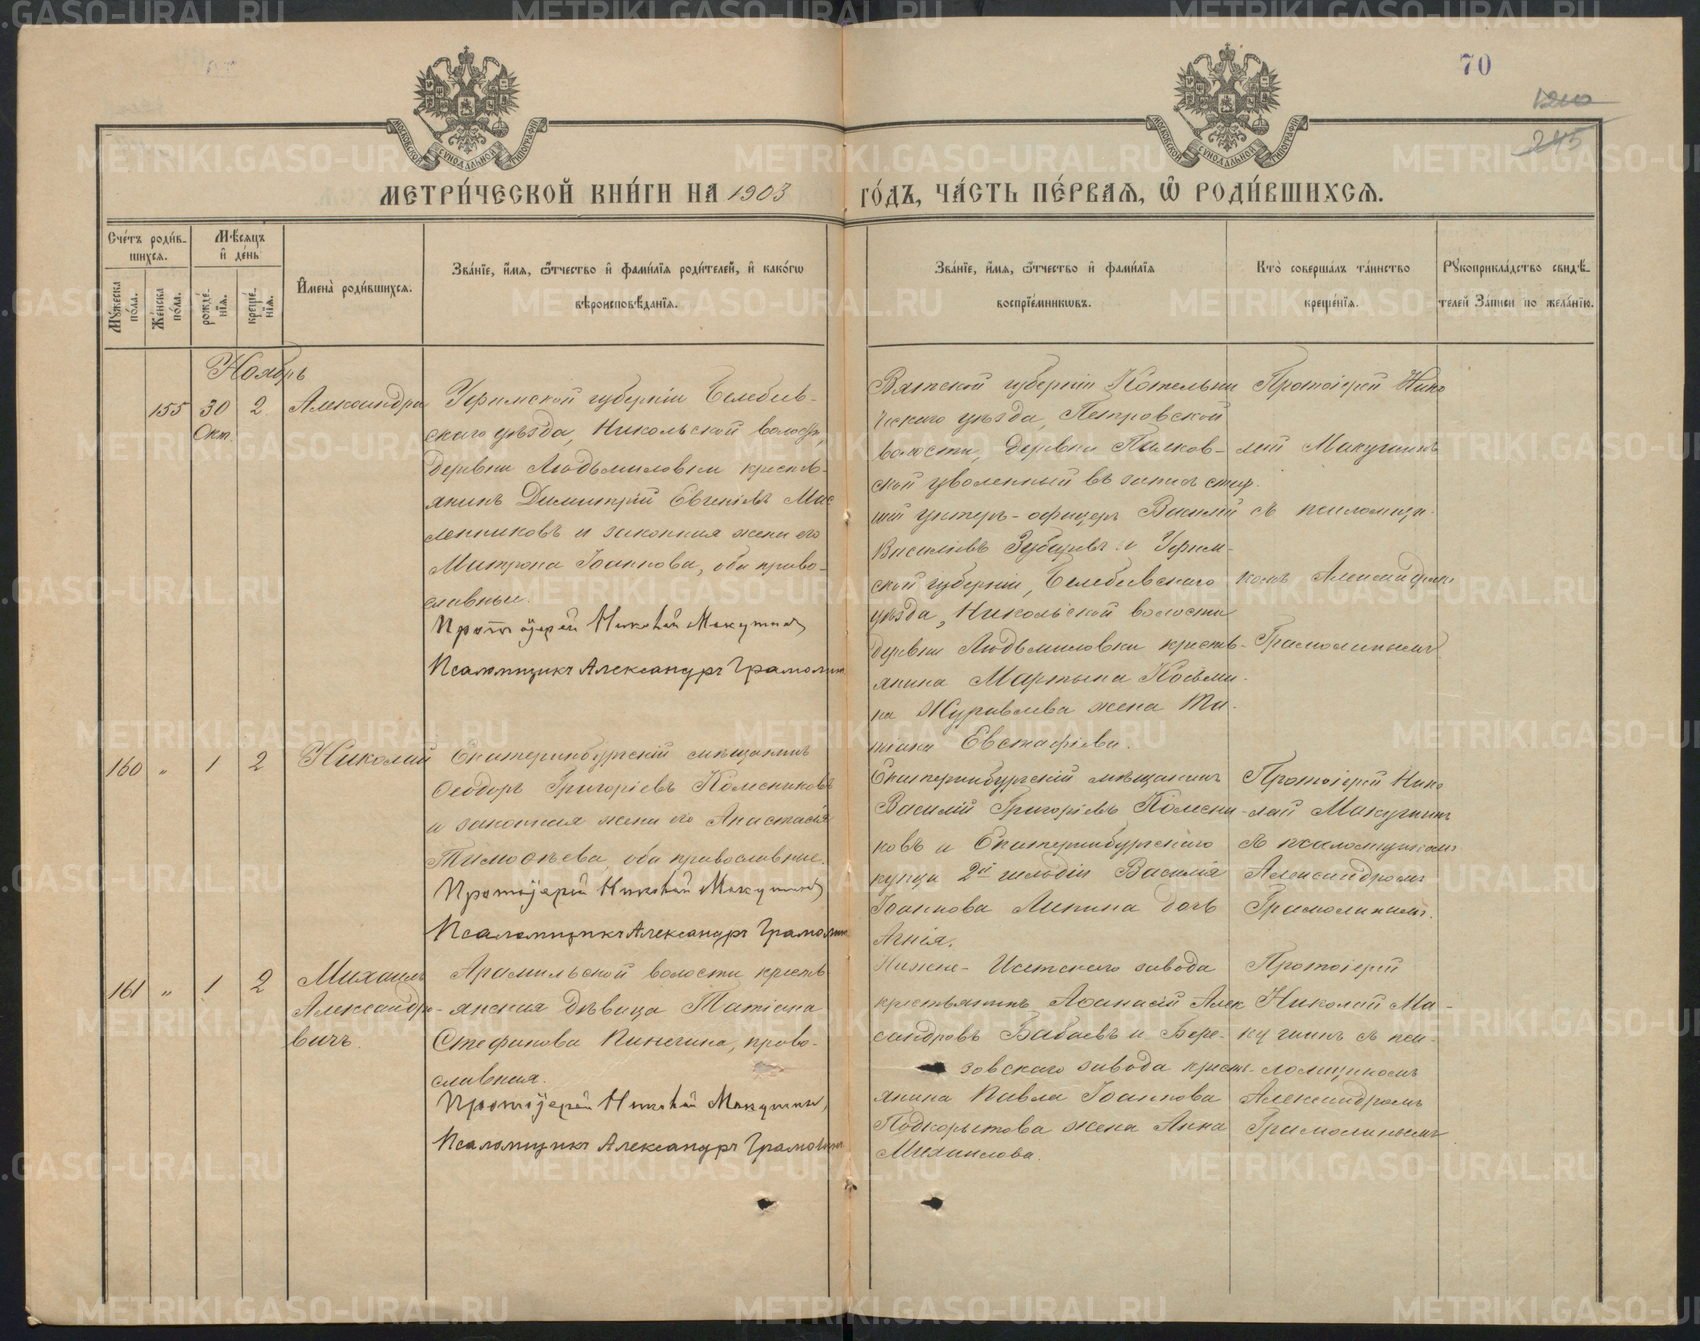 70
245
МЕТРИ́ЧЕСКОЙ КНИ́ГИ НА 1903 ГО́ДЪ, ЧА́СТЬ ПЕ́РВАЯ, Ѡ҆ РОДИ́ВШИХСЯ.
Сче́тъ роди́в-
шихся.
Мѣ́сяцъ
и҆ де́нь
Мꙋ́жеска
по́ла.
Же́нска
по́ла.
рожде́-
нїя.
креще́-
нїя.
И҆мена̀ роди́вшихся.
Зва́нїе, и҆́мя, ѻ҆́тчество и҆ фами́лїя роди́телей, и҆ како́гѡ
вѣроисповѣ́данїя.
Зва́нїе, и҆́мя, ѻ҆́тчество и҆ фами́лїя
воспрїе́мникѡвъ.
Кто̀ соверша́лъ та́инство
креще́нїя.
Рꙋкоприкла́дство свидѣ́-
телей за́писи по жела́нїю.
Ноябрь
155 30 2 Александра
Окт.
Уфимской губерніи Белебеев-
скаго уѣзда, Никольской волости,
деревни Людьмиловки кресть-
янинъ Димитрій Евгеніевъ Мас
ленниковъ и законная жена его
Матрона Іоаннова, оба право-
славные.
Протоіерей Николай Макушинъ
Псаломщикъ Александръ Грамолин
Вятской губерніи Котельни
ческаго уѣзда, Петровской
волости, деревни Палков-
ской уволенный въ запасъ стар.
шій унтеръ-офицеръ Василій
Василіевъ Зубаревъ и Уфим-
ской губерніи, Белебеевскаго
уѣзда, Никольской волости
деревни Людьмиловки кресть-
янина Мартына Косьми-
на Журавлева жена Та-
тіана Евстафіева.
Протоіерей Нико
лай Макушинъ
съ псаломщи-
комъ Александро
Грамолинымъ
160 „ 1 2 Николай
Екатеринбургскій мѣщанинъ
Ѳеодоръ Григоріевъ Колесниковъ
и законная жена его Анастасія
Тимоѳеева, оба православные.
Протоіерей Николай Макушинъ
Псаломщикъ Александръ Грамолин
Екатеринбургскій мѣщанинъ
Василій Григоріевъ Колесни
ковъ и Екатеринбургскаго
купца 2й гильдіи Василія
Іоаннова Липина дочь
Агнія.
Протоіерей Нико
-лай Макушинъ
съ псаломщикомъ
Александромъ
Грамолинымъ.
161 „ 1 2 Михаилъ
Александро-
вичъ.
Арамильской волости кресть
янская дѣвица Татіана
Стефанова Пинегина, право-
славная.
Протоіерей Николай Макушинъ,
Псаломщикъ Александръ Грамолин
Нижне-Исетскаго завода
крестьянинъ Аѳанасій Алек
сандровъ Бабаевъ и Бере-
зовскаго завода кресть-
янина Павла Іоаннова
Подкорытова жена Анна
Михаилова.
Протоіерей
Николай Ма-
кушинъ съ пса-
ломщикомъ
Александромъ
Грамолинымъ